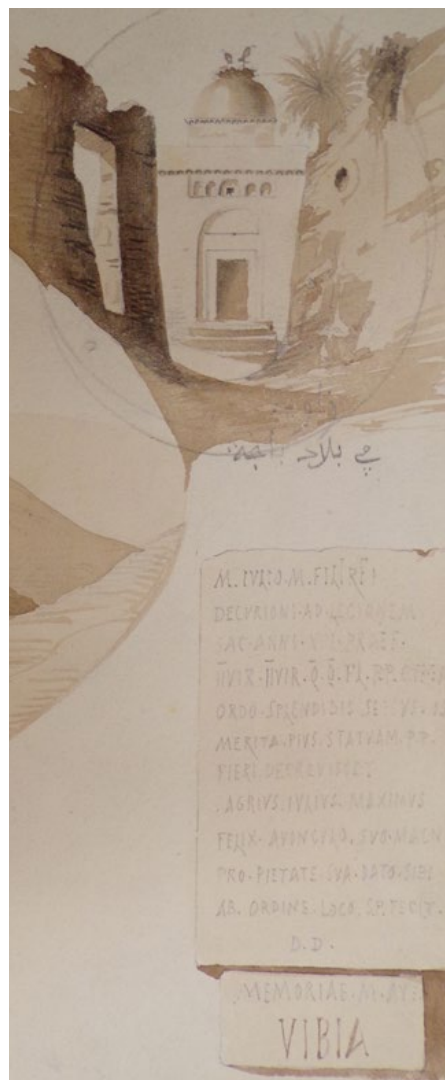 في بلاد باجة
M. IVLIO. M. FIL.
DECVRIONI·AD·LECTIONEM
SAC·ANNI·PRAEF.
IIVIR·IIVIR·Q̄·Q̄·FL·P.P.
ORDO·SPLENDIDIS
MERITA·PIVS·STATVAM·P.P.
FIERI DECREVISSET
.AGRIVS·IVLIVS·MAXIMVS
FELIX·AVONCVLO·SVO·MAGN
PRO·PIETATE·SVA·DATO·SIBI
AB. ORDINE·LOCO·S.P.FECIT.
D.D.
MEMORIAE·M·AVE
VIBIA